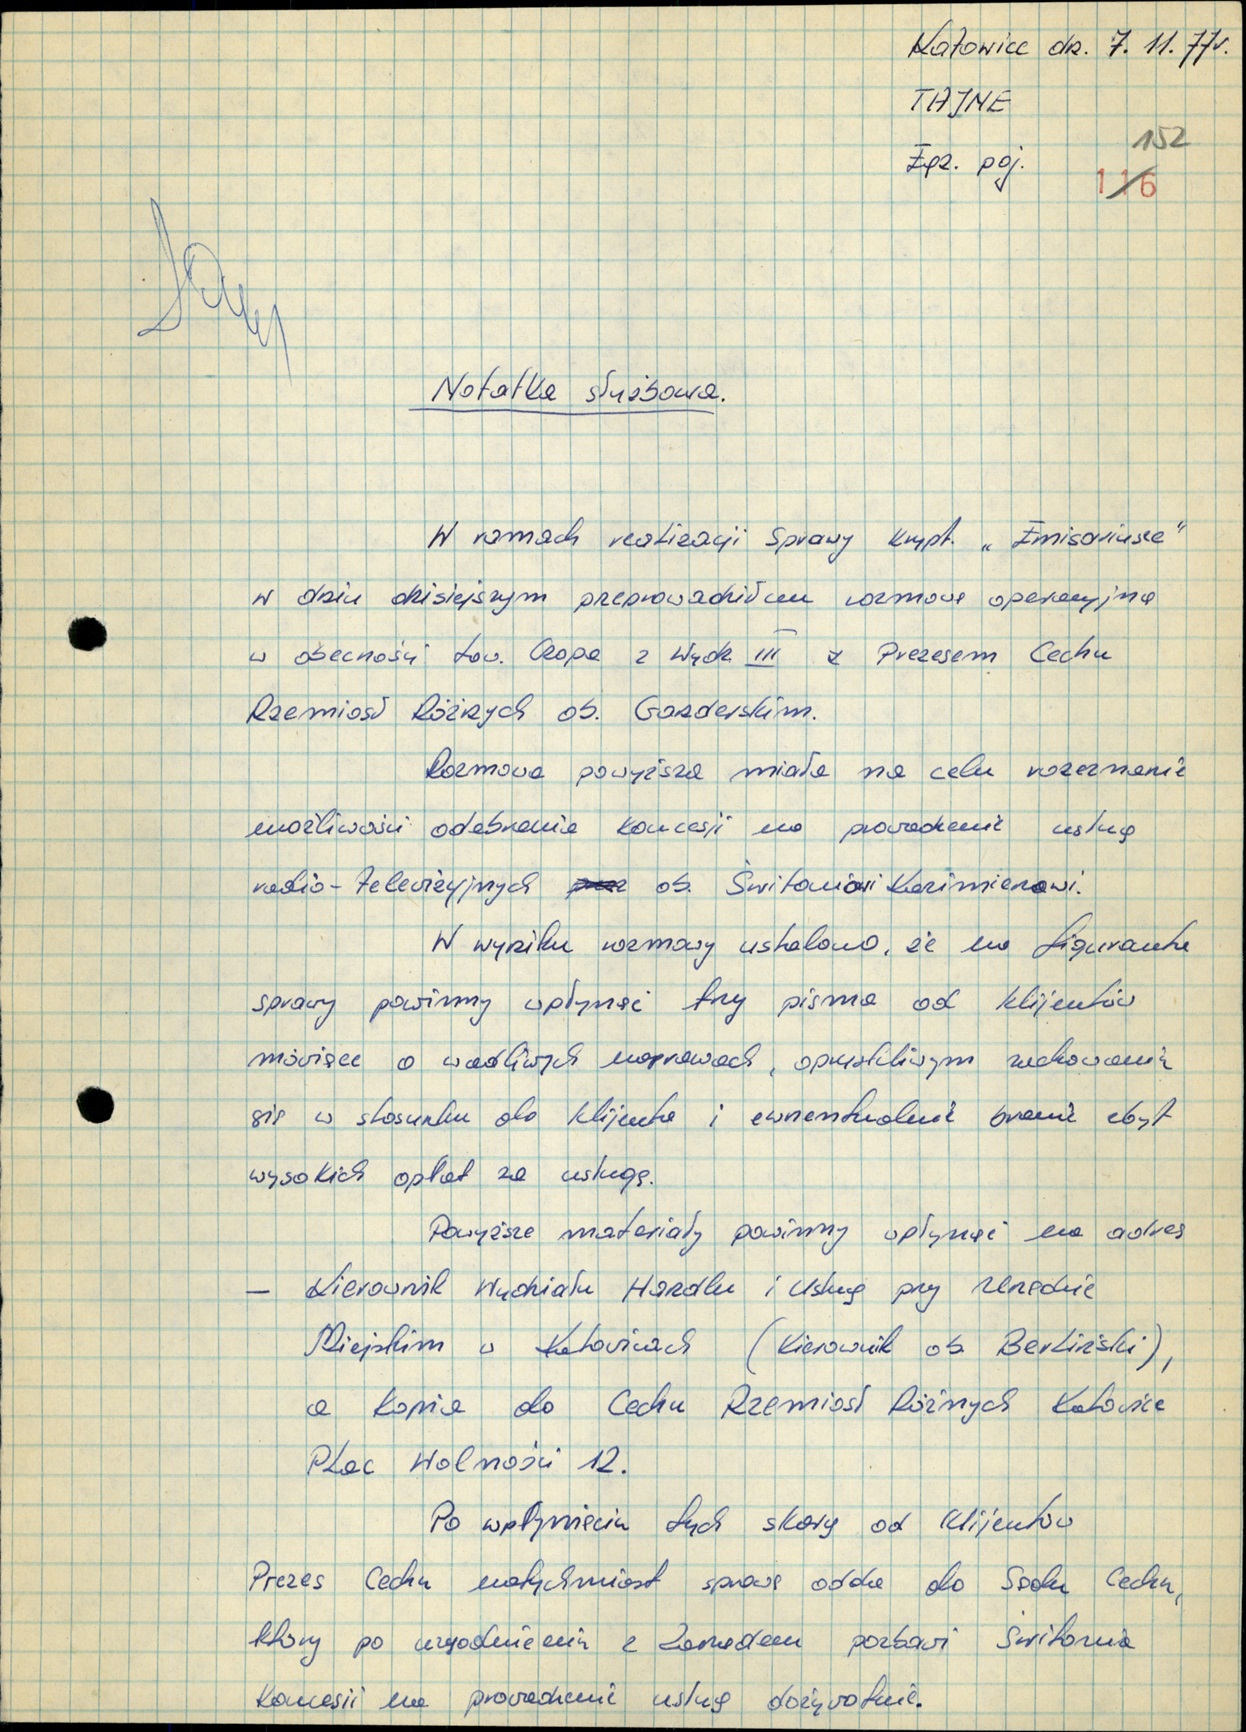 Katowice dn. 7. 11. 77r.
TAJNE
Egz. poj.
152
116
Notatka służbowa.
W ramach realizacji sprawy krypt. „Emisariusze"
w dniu dzisiejszym przeprowadziłem rozmowę operacyjną
w obecności tow. Czopa z Wydz. III z Prezesem Cechu
Rzemiosł Różnych ob. Gazderskim.
Rozmowa powyższa miała na celu rozeznanie
możliwości odebrania koncesji na prowadzenie usług
radio-telewizyjnych ob. Świtoniowi Kazimierzowi.
W wyniku rozmowy ustalono, że na figuranta
sprawy powinny wpłynąć trzy pisma od klijentów
mówiące o wadliwych naprawach, opryskliwym zachowaniu
się w stosunku do klijenta i ewnentualnie branie zbyt
wysokich opłat za usługę.
Powyższe materiały powinny wpłynąć na adres
— Kierownik Wydziału Handlu i Usług przy Urzędzie
Miejskim w Katowicach (kierownik ob. Berliński),
a kopia do Cechu Rzemiosł Różnych Katowice
Plac Wolności 12.
Po wpłynięciu tych skarg od klijentów
Prezes Cechu natychmiast sprawę odda do Sądu Cechu,
który po uzgodnieniu z Zarządem pozbawi Świtonia
koncesji na prowadzenie usług dożywotnie.